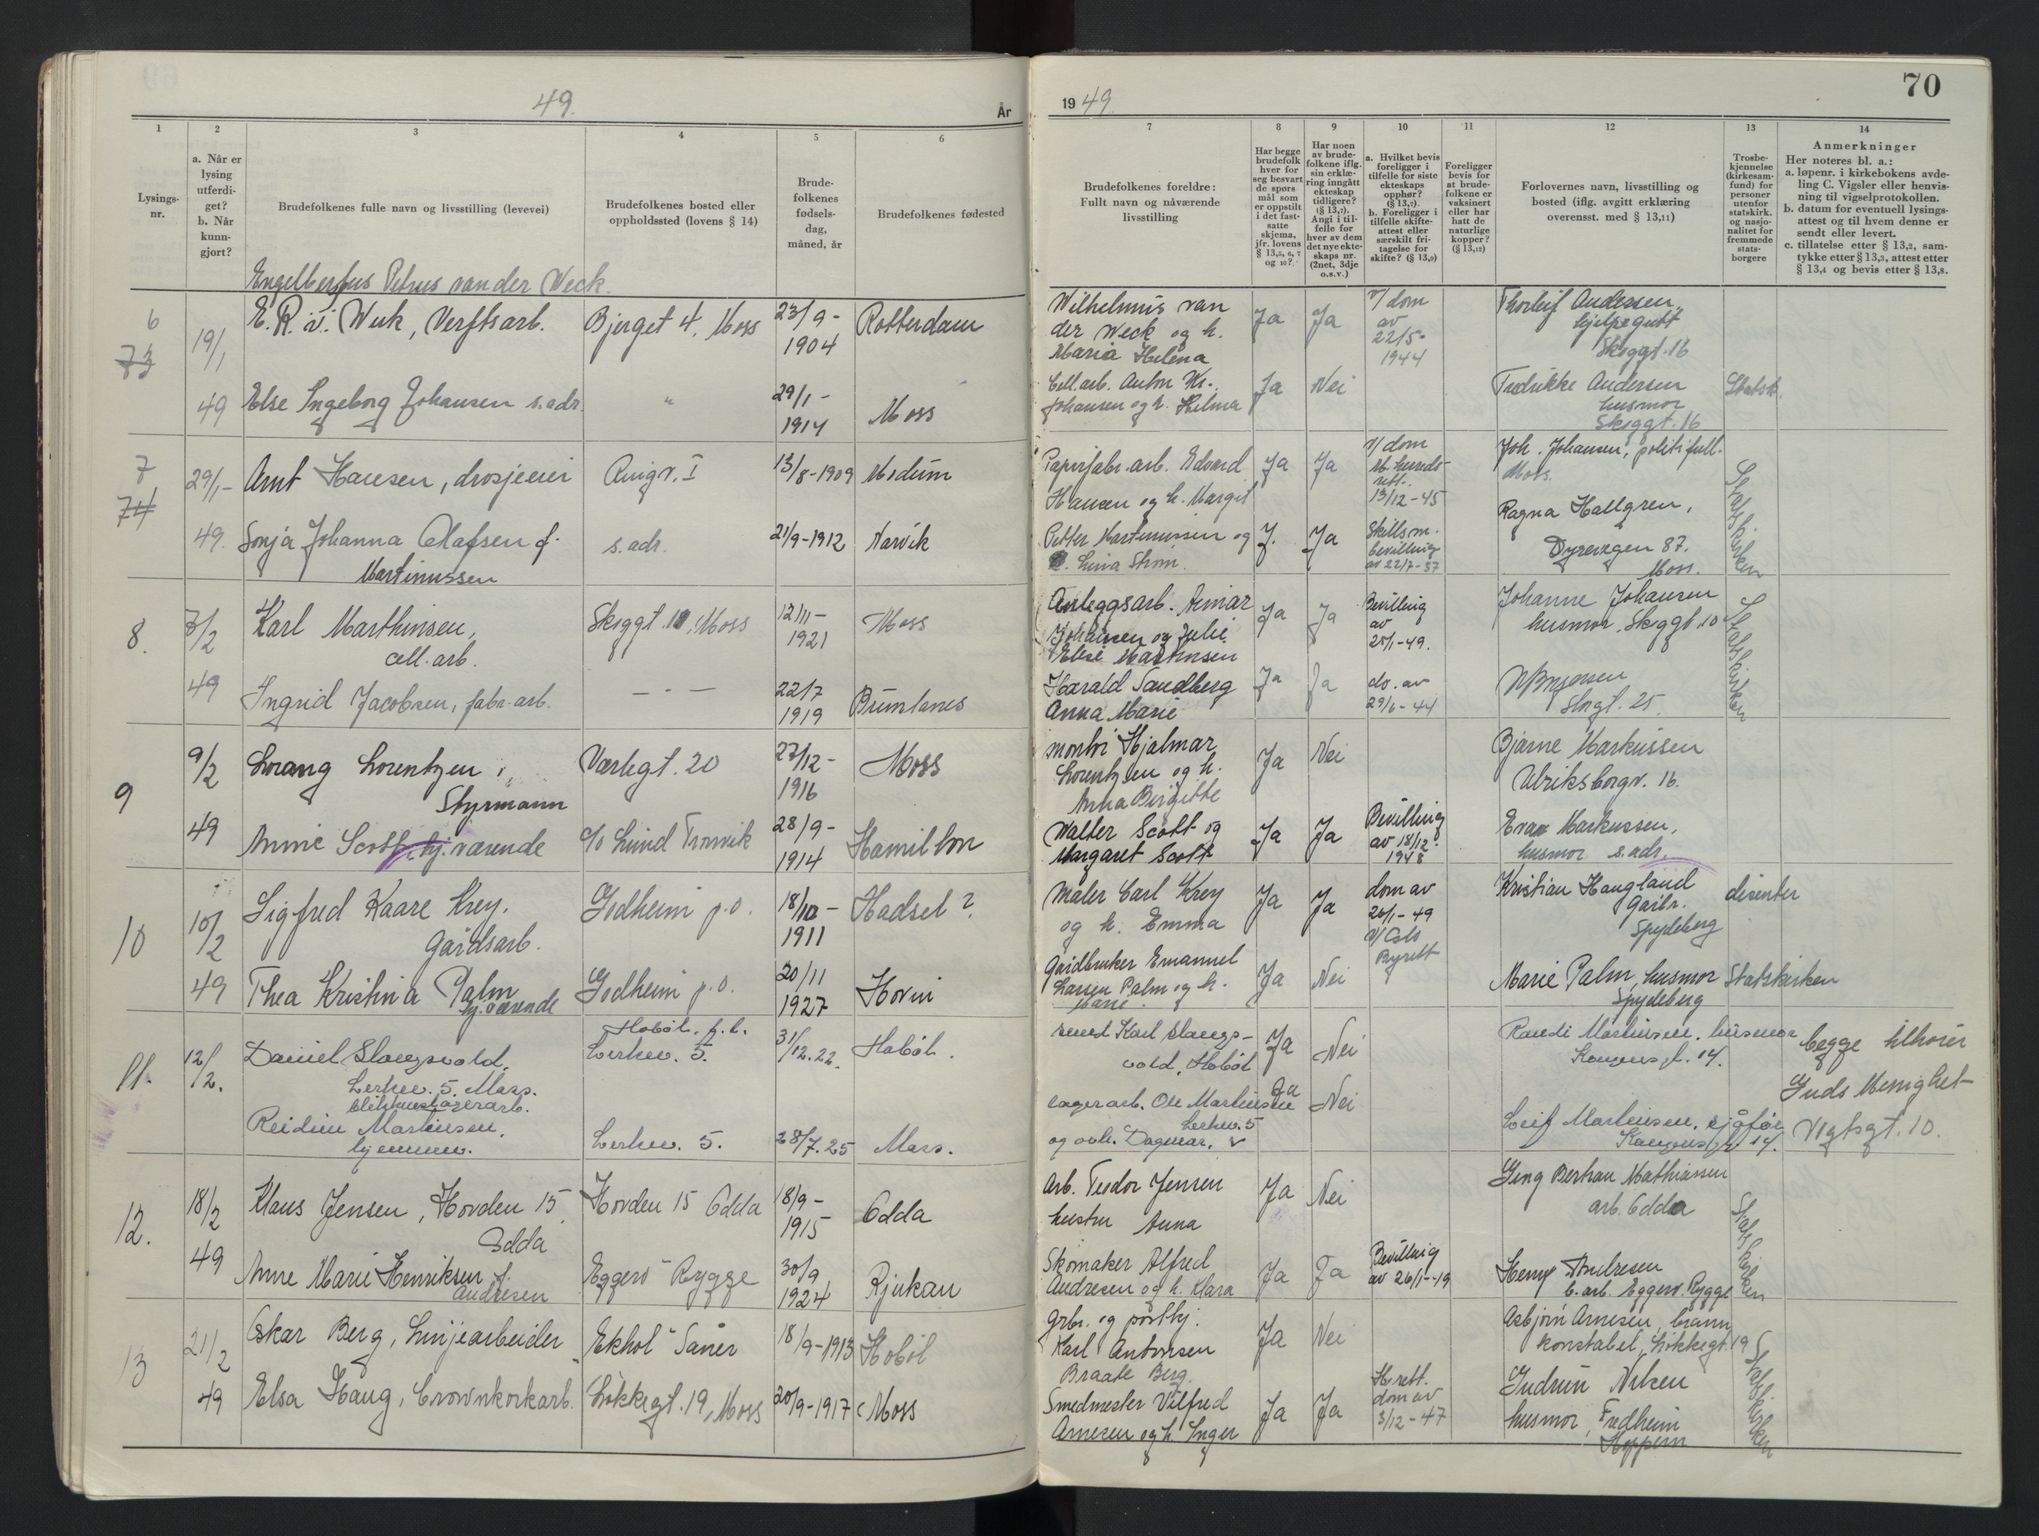 49.
År
1
2
3
4
5
6
Lysings-
nr.
a. Når er
lysing
utferdi-
get?
b. Når
kunn-
gjort?
Brudefolkenes fulle navn og livsstilling (levevei)
Brudefolkenes bosted eller
oppholdssted (lovens § 14)
Brude-
folkenes
fødsels-
dag,
måned, år
Brudefolkenes fødested
Engelbertus Petrus van der Weck.
6
73
19/1
49
E. R. v. Wek, Verftsarb.
Bjerget 4, Moss
23/9-
1904
Rotterdam
Else Ingeborg Johansen s. adr.
"
29/1-
1914
Moss
7
74
29/1-
49.
Arnt Hansen, drosjeeier
Ringv. I
13/8-1909
Modum
Sonja Johanna Olafsen f.
Martinussen
s. adr.
21/9-1912
Narvik
8.
3/2
49
Karl Marthinsen,
cell. arb.
Skoggt. 10, Moss
12/11-
1921
Moss
Ingrid Jacobsen, fabr. arb.
— " —
22/7
1919
Brunlanes
9
9/2
49
Lorang Lorentzen,
Styrmann
Varlegt. 20
27/12-
1916
Moss
Annie Scott, hj. værende
c/o Lund Tronvik
28/9-
1914
Hamilton
10
10/2
49
Sigfred Kaare Krey,
Gårdsarb.
Godheim p.o.
18/10-
1911
Hadsel?
Thea Kristina Palm
hj. værende
Godheim p.o.
20/11
1927
Hovin
11.
12/2.
Daniel Slangsvold,
Lerkev. 5, Moss.
blikkenslagerarb.
Hobøl. f.t.
Lerkev. 5.
31/12.22.
Hobøl.
Reidun Martinsen,
hjemmev.
Lerkev. 5.
28/7.25
Moss.
12.
18/2
49
Klaus Jensen, Hovden 15,
Odda
Hovden 15 Odda
18/9-
1915
Odda
Anne Marie Henriksen f.
Andresen
Eggerv Rygge
30/9
1924
Rjukan
13
21/2
49
Oskar Berg, Linjearbeider
Ekhol Såner
18/9-1913
Hobøl
Elsa Haug, Crownkorkarb.
Løkkegt. 19, Moss
20/9-1917
Moss
1949
70
7
8
9
10
11
12
13
14
Brudefolkenes foreldre:
Fullt navn og nåværende
livsstilling
Har begge
brudefolk
hver for
seg besvart
de spørs
mål som
er oppstilt
i det fast-
satte
skjema,
jfr. lovens
§ 13,5, 6, 7
og 10?
Har noen
av brude-
folkene iflg.
sin erklæ-
ring inngått
ekteskap
tidligere?
(§ 13,7).
Angi i til-
felle for
hver av dem
det nye ekte-
skaps nr.
(2net, 3dje
o.s.v.)
a. Hvilket bevis
foreligger i
tilfelle for siste
ekteskaps
opphør?
(§ 13,7).
b. Foreligger i
tilfelle skifte-
attest eller
særskilt fri-
tagelse for
skifte? (§ 13,9)
Foreligger
bevis for
at brude-
folkene er
vaksinert
eller har
hatt de
naturlige
kopper?
(§ 13,12)
Forlovernes navn, livsstilling og
bosted (iflg. avgitt erklæring
overensst. med § 13,11)
Trosbe-
kjennelse
(kirkesam-
fund) for
personer
utenfor
statskirk.
og nasjo-
nalitet for
fremmede
stats-
borgere
Anmerkninger
Her noteres bl. a.:
a. løpenr. i kirkebokens avde-
ling C. Vigsler eller henvis-
ning til vigselprotokollen.
b. datum for eventuell lysings-
attest og til hvem denne er
sendt eller levert.
c. tillatelse etter § 13,2, sam-
tykke etter § 13,3, attest etter
§ 13,4 og bevis etter § 13,8.
Wilhelmus van
der Weck og h.
Maria Helena
Ja
Ja
v/ dom
av
22/5-
1944
Thorleif Andersen,
hjelpegutt
Skoggt. 16
Cell. arb. Anton Kr.
Johansen og h. Hilma
Ja
Nei
Fredrikke Andersen
husmor
Skoggt. 16
Statsk.
Papirfabr. arb. Edvard
Hansen og h. Margit
Ja
Ja
v/ dom
M. herreds-
rett.
13/12-45
Joh. Johansen, politifull.
Moss.
Statskirken
Petter Martinussen og
h. Lina Strøm.
J.
Ja
Skillsm.
bevilling
av 22/7-37
Ragna Hallgren,
Dyrevegen 87.
Moss.
Anleggsarb. Arnar
Johansen og Julie
Else Martinsen
Ja
Ja
Bevilling
av
25/1-49.
Johanne Johansen
husmor, Skoggt. 10
Statskirken
Harald Sandberg
Anna Marie
Ja
Ja
do. av
29/6-44
Slngt. 25.
montør Hjalmar
Lorentzen og h.
Anna Birgitte
Ja
Nei
Bjarne Markussen
Ulriksborgv. 16.
Walter Scott og
Margaret Scott
Ja
Ja
Bevilling
av 18/12
1948
Eva Markussen,
husmor s. adr.
Maler Carl Krey
og h. Emma
Ja
Ja
dom av
26/1-49
v/ Oslo
Byrett
Kristian Haugland
Gårbr.
Spydeberg
disenter
Gårdbruker Emanuel
Larsen Palm og h.
Marie
Ja
Nei
Marie Palm, husmor
Spydeberg
Statskirken
Karl Slangs-
vold, Hobøl
Ja
Nei
Randi Martinsen, husmor
Kongensgt. 14.
begge tilhører
Guds Menighet
Vogtsgt. 10.
lagerarb. Ole Martinsen
Lerkev. 5
og h. Dagmar.
Ja
Nei
Leif Martinsen, sjåfør
Kongensgt. 14.
Arb. Teodor Jensen
hustru Anna
Ja
Nei
Geng Berhau Mathiassen
arb. Odda
Statskirken
Skomaker Alfred
Andresen og h. Klara
Ja
Ja
Bevilling
av 26/1-49
Henry Andresen
b. arb. Eggerv. Rygge
Grbr. og postbj.
Karl Antonsen
Braate Berg.
Ja
Nei
Asbjørn Arnesen, brann
konstabel, Løkkegt. 19
Statskirken
Smedmester Vilfred
Arnesen og h. Inger
Ja
Ja
H. rett.
dom av
3/12-47
Gudrun Nilsen
husmor, Fredheim
Hoppern